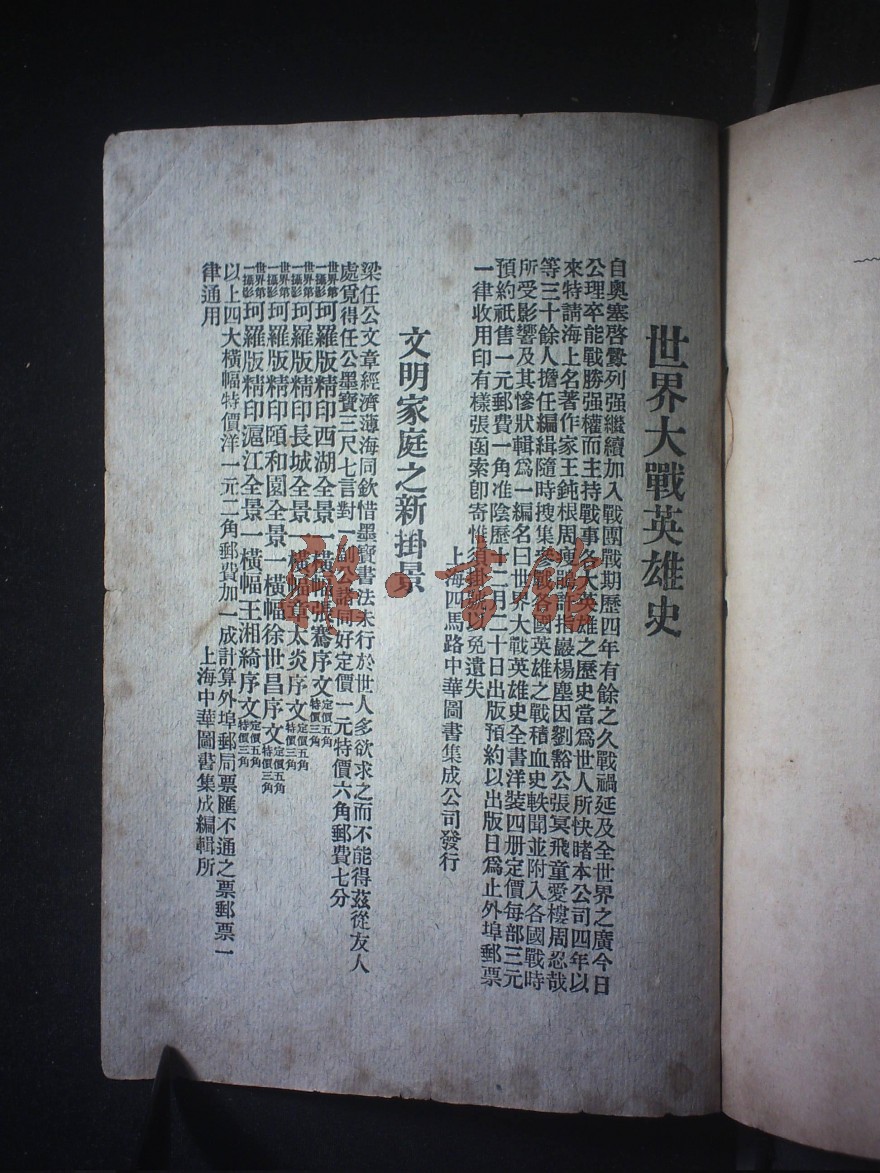 世界大戰英雄史
自奧塞啓釁列强繼續加入戰團戰期歷四年有餘之久戰禍延及全世界之廣今日
公理卒能戰勝强權而主持戰事各大英雄之歷史當爲世人所快睹本公司四年以
來特請海上名著作家王鈍根周瘦鵑許指巖楊塵因劉豁公張冥飛童愛樓周忍哉
等三十餘人擔任編緝隨時搜集參戰各國英雄之戰積血史軼聞並附入各國戰時
所受影響及其慘狀輯爲一編名曰世界大戰英雄史全書洋裝四册定價每部三元
預約祇售一元郵費一角准陰歷十月二十日出版預約以出版日爲止外埠郵票
一律收用印有樣張函索卽寄惟須掛號以免遺失
上海四馬路中華圖書集成公司發行
文明家庭之新掛景
梁任公文章經濟薄海同欽惜墨寶書法未行於世人多欲求之而不能得茲從友人
處覓得任公墨寶三尺七言對一副公諸同好定價一元特價六角郵費七分
世界第一攝影珂羅版精印西湖全景一橫幅張謇序文定價五角特價三角
世界第一攝影珂羅版精印長城全景一橫幅章太炎序文定價五角特價三角
世界第一攝影珂羅版精印頤和園全景一橫幅徐世昌序文定價五角特價三角
世界第一攝影珂羅版精印滬江全景一橫幅王湘綺序文定價五角特價三角
以上四大橫幅特價洋一元二角郵費加一成計算外埠郵局票匯不通之票郵票一
律通用
上海中華圖書集成編輯所
雅·書館